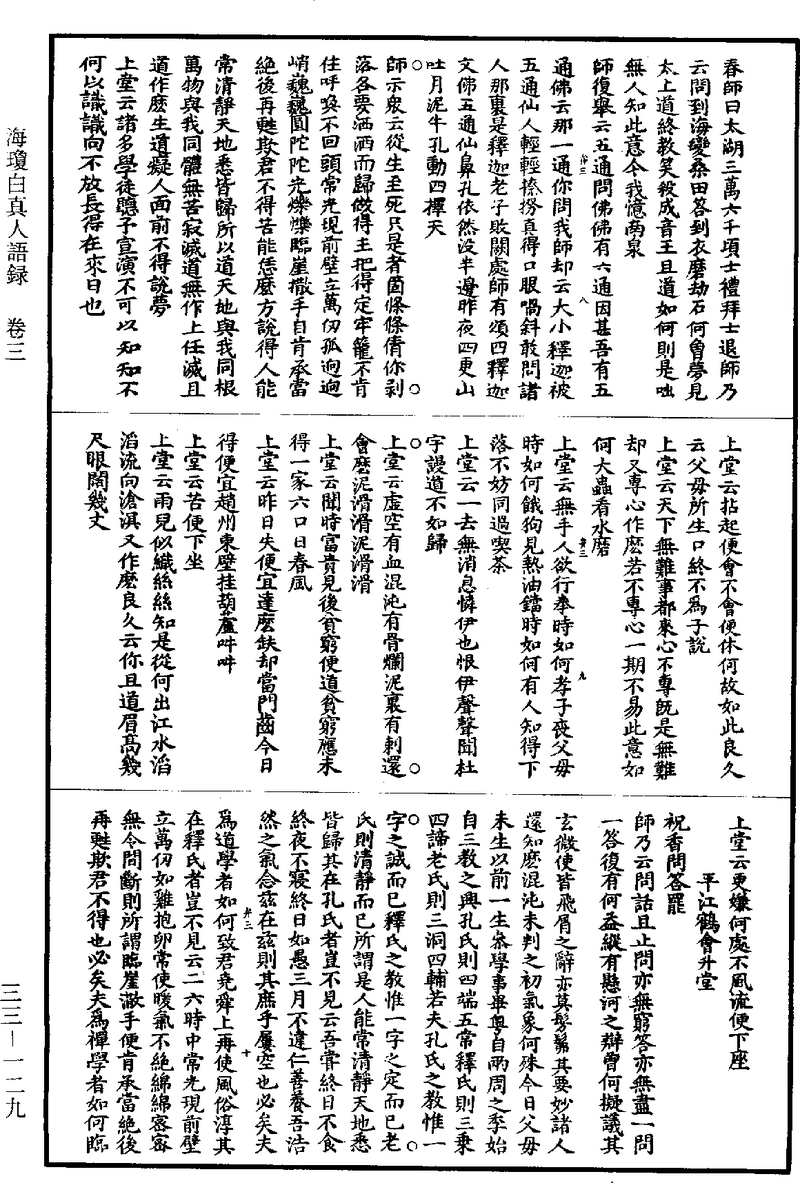 春師曰太湖三萬六千頃士禮拜士退師乃
云問到海變桑田答到衣磨劫石何曾夢見
太上道終教笑殺成音王且道如何則是咄
無人知此意令我憶南泉
師復舉云五通問佛佛有六通因甚吾有五
通佛云那一通你問我師却云大小釋迦被
五通仙人輕輕捺撈真得口眼喎斜敢問諸
人那裏是釋迦老子敗闕處師有頌四釋迦
文佛五通仙鼻孔依然没半邊昨夜四更山
吐月泥牛孔動四禪天
師示衆云從生至死只是者箇條條倩你剥
落各要洒洒而歸做得主把得定牢籠不肯
住呼喚不回頭常光現前壁立萬仞孤迥迥
峭巍巍圓陀陀光爍爍臨崖撒手自肯承當
絶後再甦欺君不得苦能恁麽方說得人能
常清靜天地悉皆歸所以道天地與我同根
萬物與我同體無苦寂滅道無作上任滅且
道作麽生道癡人面前不得說夢
上堂云諸多學徒聽予宣演不可以知知不
何以識識向不放長得在來日也
上堂云拈起便會不會便休何故如此良久
云父母所生口終不爲子說
上堂云天下無難事都來心不專既是無難
却又專心作麽若不專心一期不易此意如
何大蟲看水磨
上堂云無手人欲行拳時如何孝子喪父母
時如何餓狗見熱油鐺時如何有人知得下
落不妨同過喫茶
上堂云一去無消息憐伊也恨伊聲聲聞杜
宇謾道不如歸
上堂云虚空有血混沌有骨爛泥裏有刺還
會麽泥滑滑泥滑滑
上堂云聞時富貴見後貧窮便道貧窮應未
得一家六口日春風
上堂云昨日失便宜達麽缺却當門齒今日
得便宜趙州東壁挂葫蘆吽吽
上堂云苦便下坐
上堂云雨兒似織絲絲知是從何出江水滔
滔流向滄溟又作麽良久云你且道眉髙幾
尺眼闊幾丈
上堂云更嫌何處不風流便下座
平江鶴會升堂
祝香問答罷
師乃云問話且止問亦無窮答亦無盡一問
一答復有何益縱有懸河之辯曾何擬議其
玄微使皆飛屑之辭亦莫髣髴其要妙諸人
還知麽混沌未判之初氣象何殊今日父母
未生以前一生參學事畢粤自兩周之季始
自三教之興孔氏則四端五常釋氏則三乘
四諦老氏則三洞四輔若夫孔氏之教惟一
字之誠而已釋氏之教惟一字之定而已老
氏則清靜而已所謂是人能常清靜天地悉
皆歸其在孔氏者豈不見云吾嘗終日不食
終夜不寢終日如愚三月不違仁善養吾浩
然之氣念兹在兹則其庶乎屢空也必矣夫
爲道學者如何致君堯舜上再使風俗淳其
在釋氏者豈不見云二六時中常光現前壁
立萬仞如雞抱卵常使暖氣不絶綿綿密密
無令間斷則所謂臨崖撒手便肯承當絶後
再甦欺君不得也必矣夫爲禪學者如何臨
海瓊白真人語録 卷三
三三—一二九